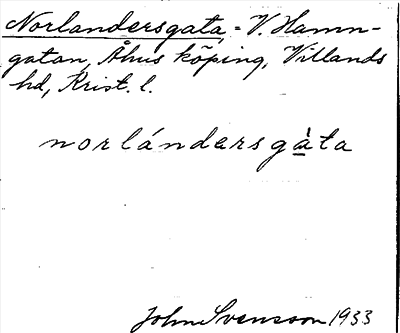 Norlandersgata, = V. Hamn-
gatan, Åhus köping, Villands
hd, Krist. l.
norlándersgàta
John Svensson 1933